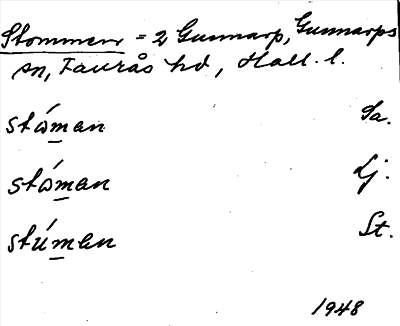 Stommen = 2 Gunnarp, Gunnarps
sn, Faurås hd, Hall. l.
stó̱man Sa.
stó̱man Lj.
stú̱man St.
1948